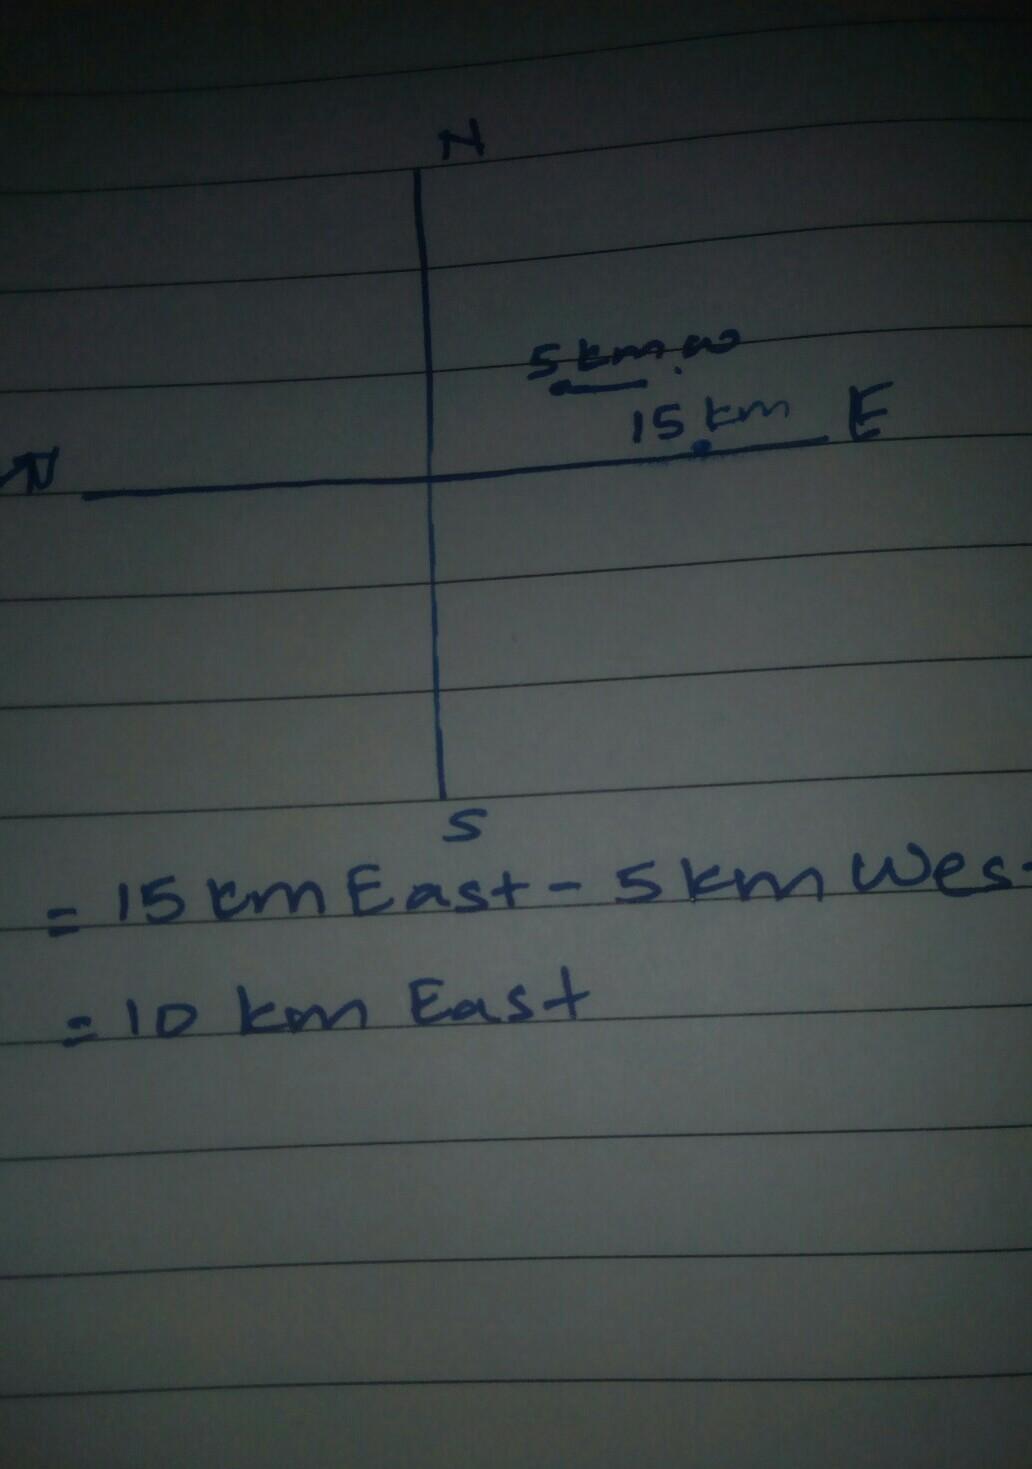 N
5 km w
15 km E
S
= 15 km East - 5 km Wes
= 10 km East